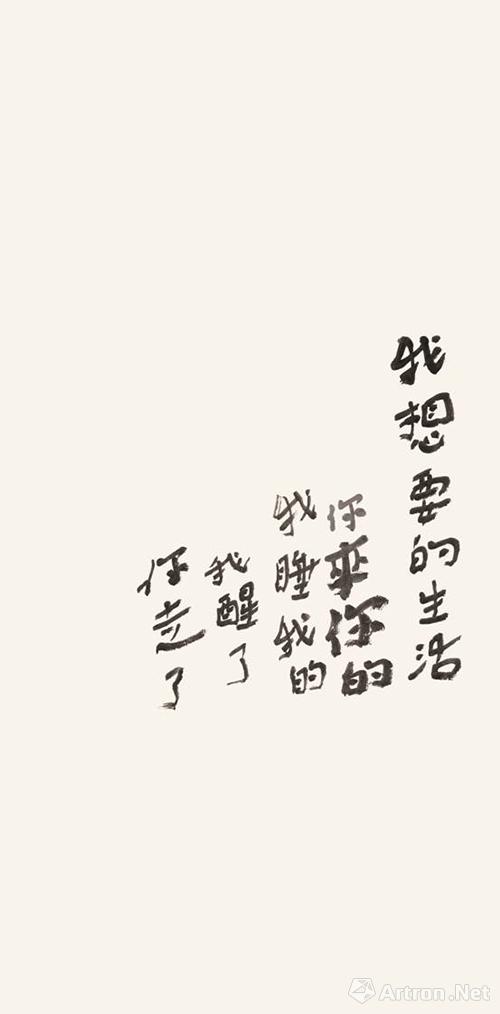 我想要的生活
你来你的
我睡我的
我醒了
你走了
Artron.Net